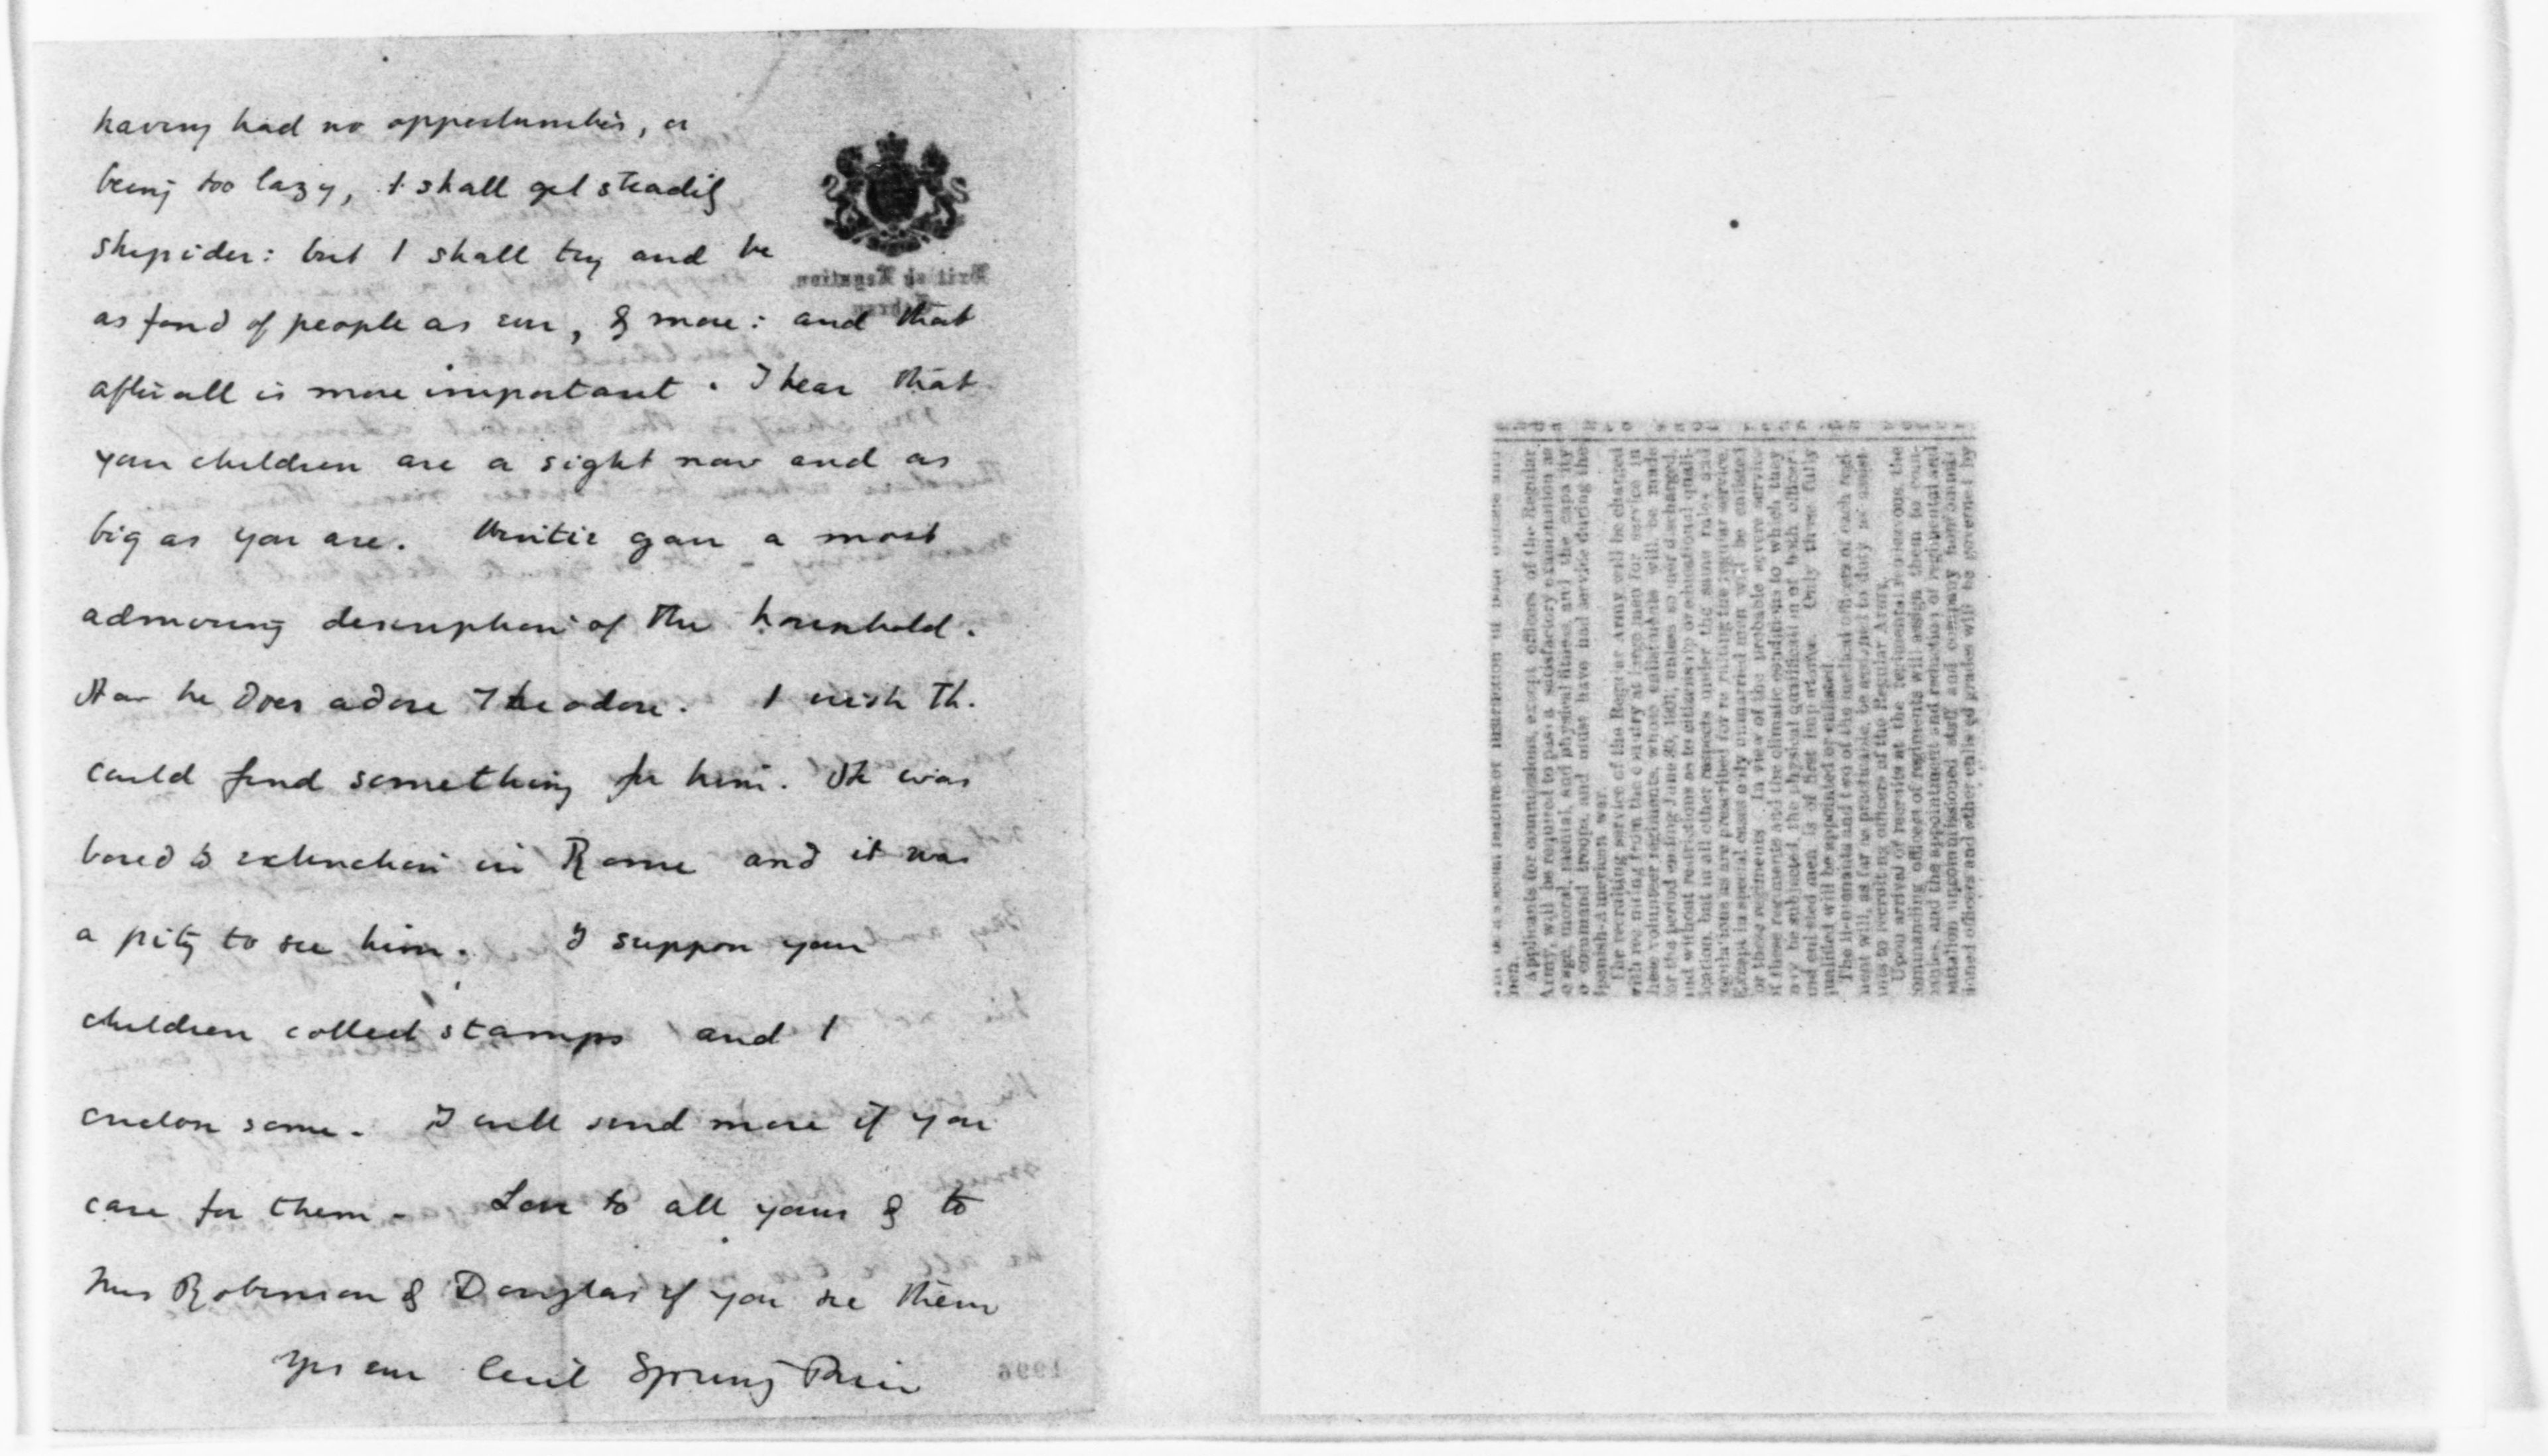 having had no opportunities, or
being too lazy, I shall get steadily
stupider: but I shall try and be
as fond of people as ever, & more: and that
after all is more important. I hear that
your children are a sight now and as
big as you are. gave a most
admiring description of the household.
How he does adore Theodore. I wish Th.
could find something for him. He was
bored to extinction in Rome and it was
a pity to see him. I suppose your
children collect stamps and I
enclose some. I will send more if you
care for them. Love to all yours & to
Mrs Robinson & Douglas if you see them
Yrs ever Cecil Spring Rice
British Legation,
1996
men.
Applicants for commissions, except officers of the Regular
Army, will be required to pass a satisfactory examination as
to age, moral, mental, and physical fitness, and the capacity
to command troops, and must have had service during the
Spanish-American war.
The recruiting service of the Regular Army will be charged
with recruiting from the country at large men for service in
these volunteer regiments, whose enlistments will be made
for the period ending June 30, 1901, unless sooner discharged,
and without restrictions as to citizenship or educational quali-
fication, but in all other respects under the same rules and
regulations as are prescribed for recruiting the regular service.
Except in special cases only unmarried men will be enlisted
for these regiments. In view of the probable severe service
of these regiments and the climatic conditions to which they
may be subjected, the physical qualification of both officers
and enlisted men is of first importance. Only those fully
qualified will be appointed or enlisted.
The lieutenants and two of the medical officers of each regi-
ment will, as far as practicable, be assigned to duty as assist-
ants to recruiting officers of the Regular Army.
Upon arrival of recruits at the regimental rendezvous, the
commanding officers of regiments will assign them to com-
panies, and the appointment and reduction of regimental and
battalion noncommissioned staff and company noncommis-
sioned officers and other enlisted grades will be governed by